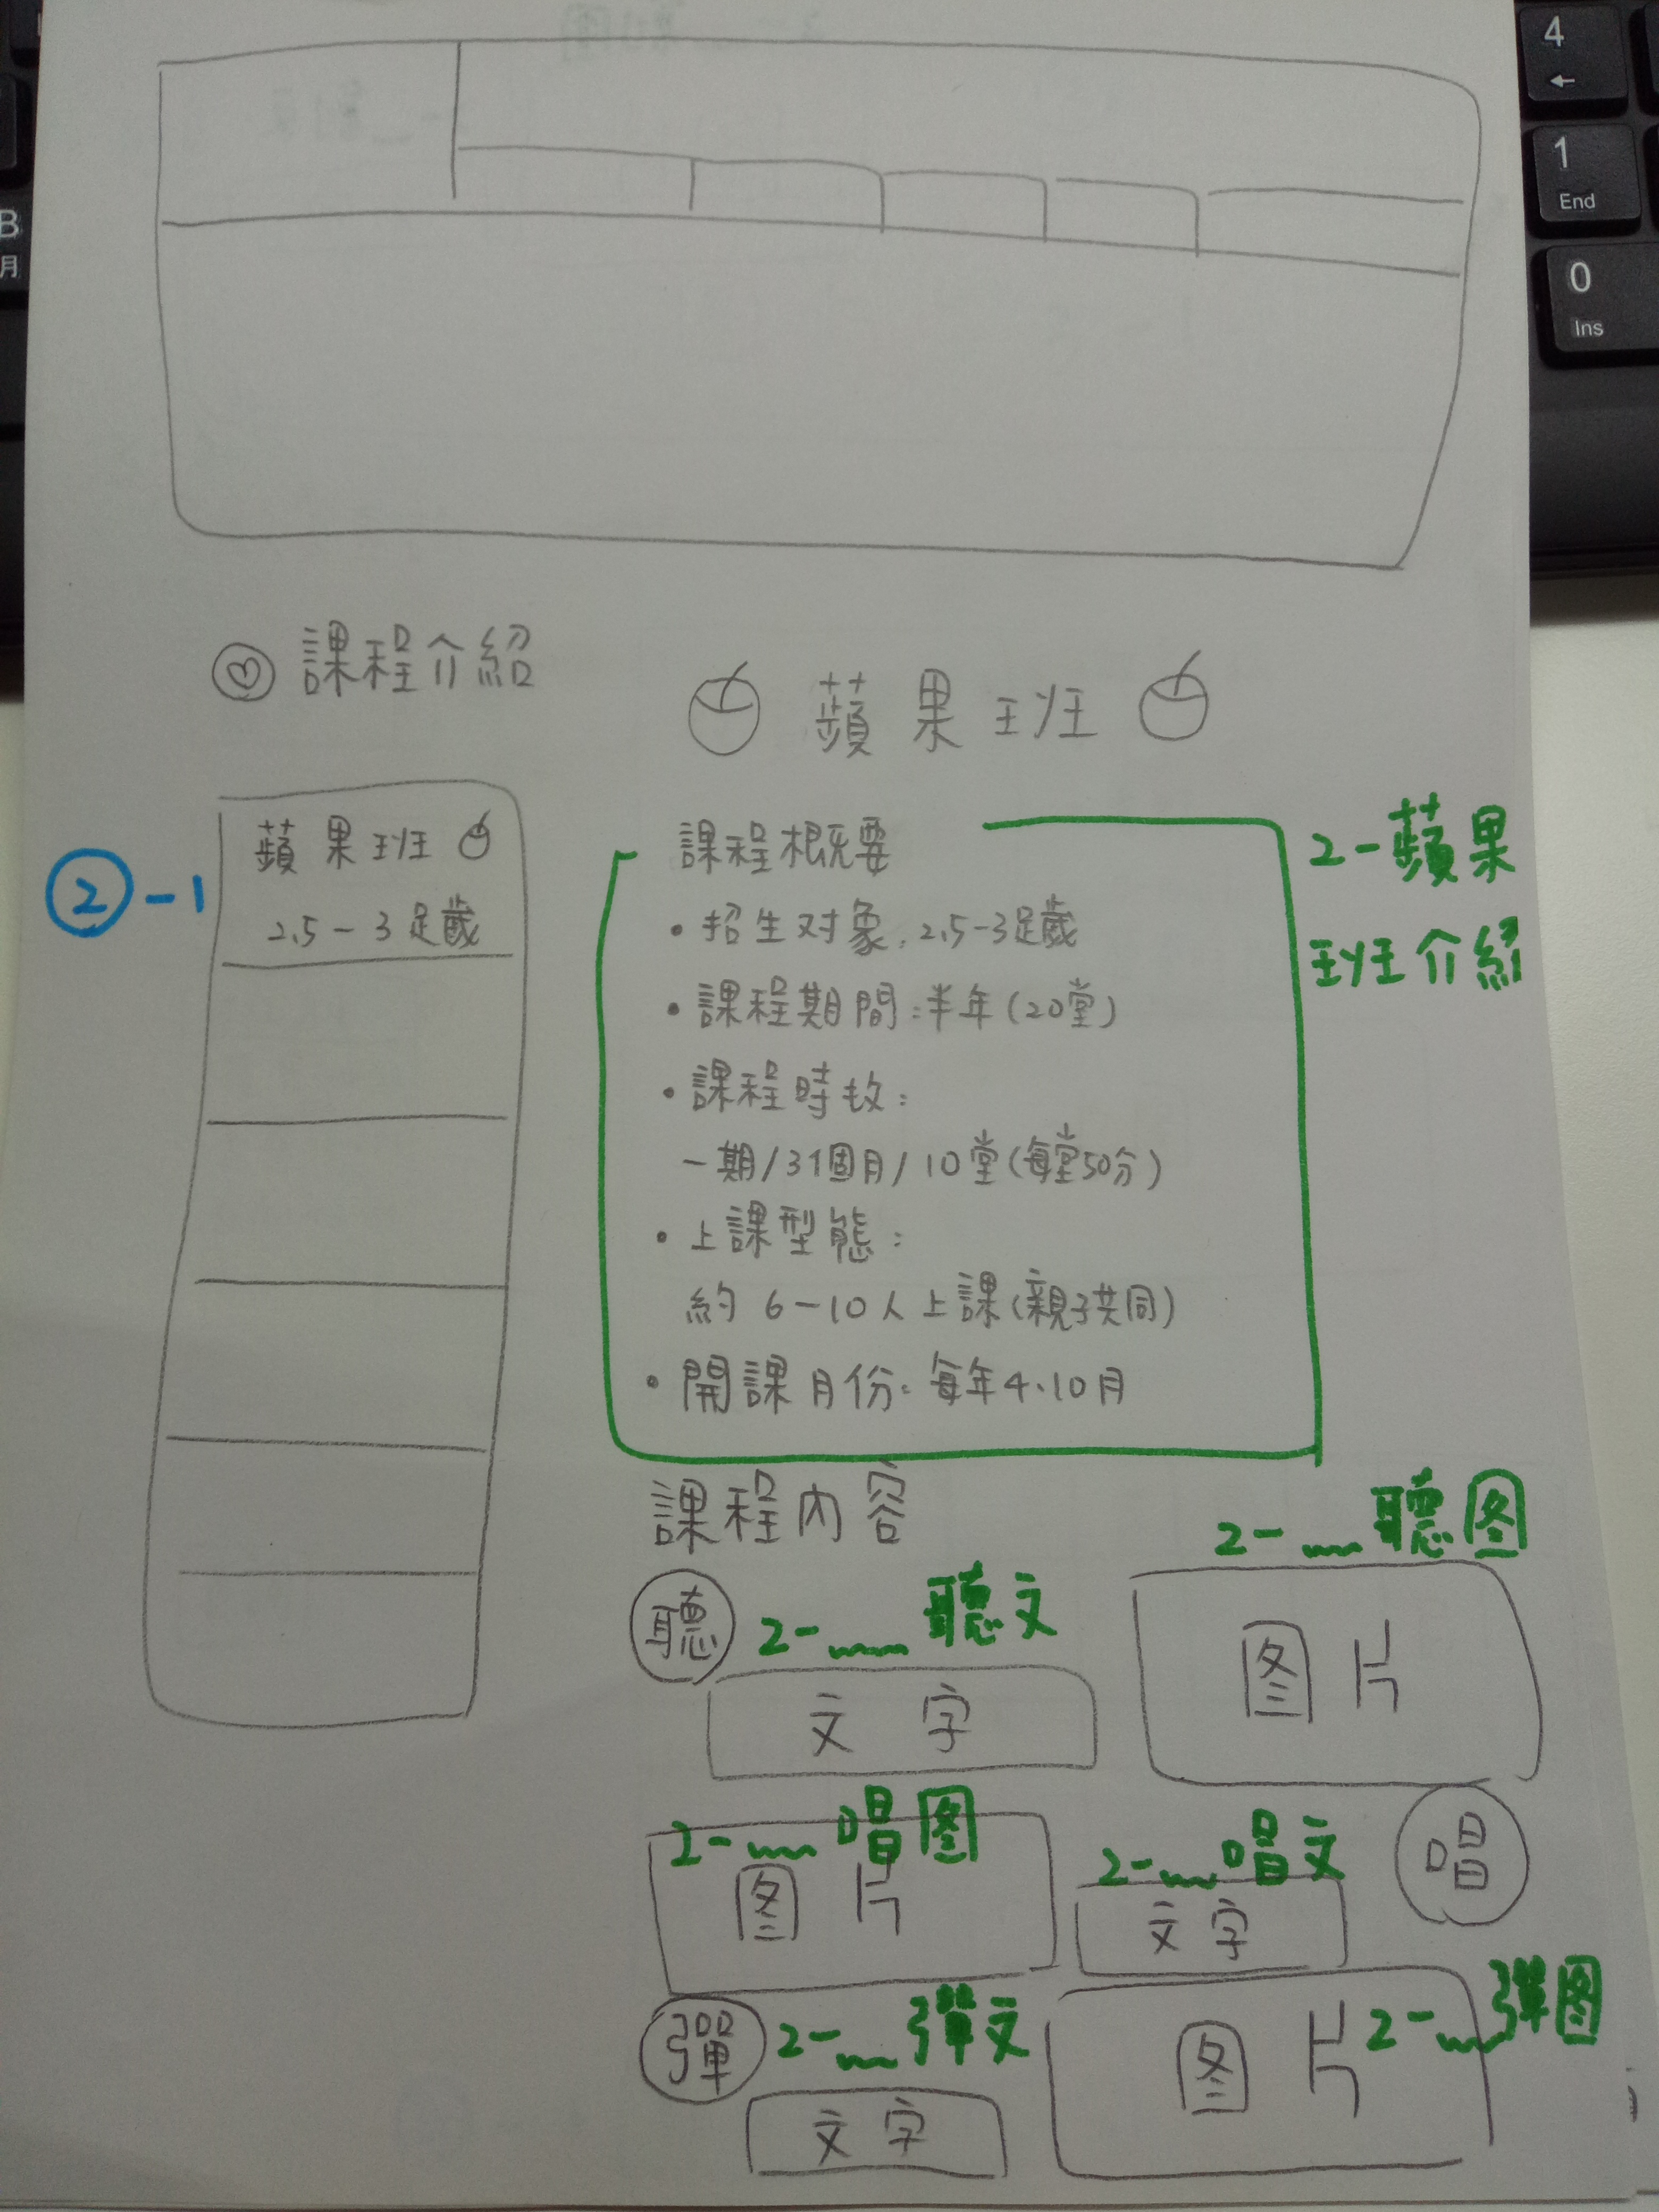 4
←
1
End
0
Ins
B
月
課程介紹
蘋果班
②-1
蘋果班
2.5-3足歲
課程概要
・招生对象:2.5-3足歲
・課程期間:半年(20堂)
・課程時攷:
一期/31個月/10堂(每堂50分)
・上課型態:
約6-10人上課(親子共同)
・開課月份:每年4、10月
2-蘋果
班介紹
課程內容
聽
2-__聽文
文字
2-__聽图
图片
2-__唱图
图片
2-__唱文
文字
唱
彈
2-__彈文
文字
2-__彈图
图片